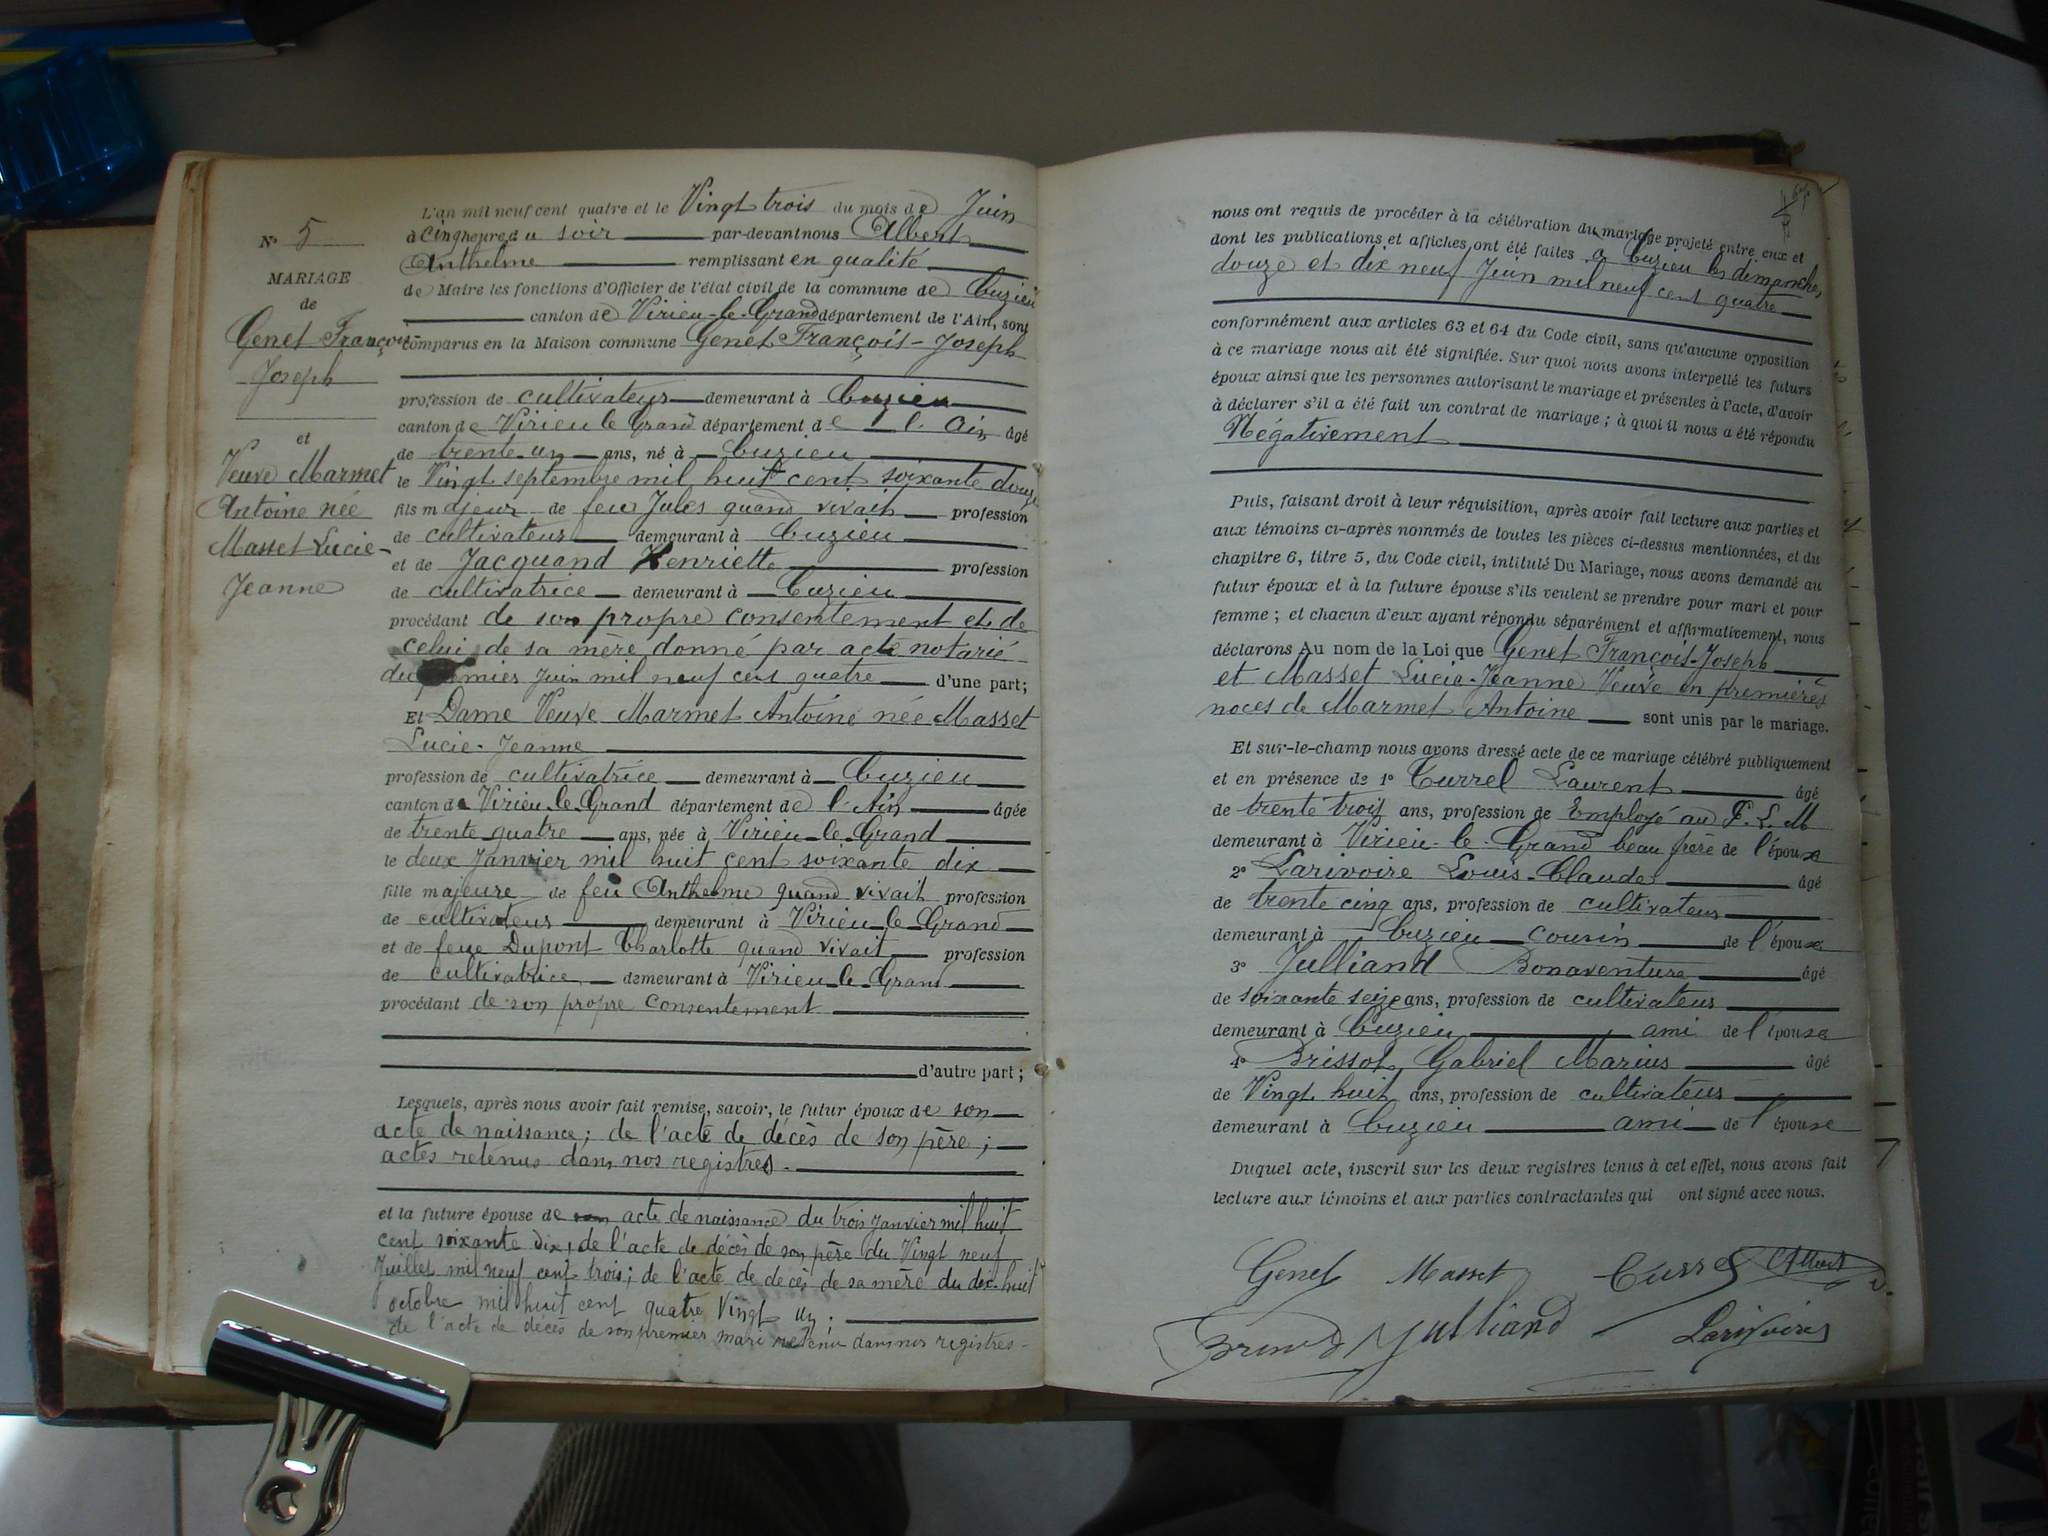 N° 5
MARIAGE
de
Genet François-
Joseph
et
Veuve Marmet
Antoine née
Masset Lucie-
Jeanne
L'an mil neuf cent quatre et le Vingt trois du mois de Juin
à cinq heures du soir par-devant nous Albert
Anthelme remplissant en qualité
de Maire les fonctions d'Officier de l'état civil de la commune de Cuzieu
canton de Virieu-le-Grand département de l'Ain, sont
comparus en la Maison commune Genet François-Joseph
profession de cultivateur demeurant à Cuzieu
canton de Virieu le Grand département de l'Ain âgé
de trente un ans, né à Cuzieu
le Vingt septembre mil huit cent soixante douze
fils majeur de feu Jules quand vivait profession
de cultivateur demeurant à Cuzieu
et de Jacquand Henriette profession
de cultivatrice demeurant à Cuzieu
procédant de son propre consentement et de
celui de sa mère donné par acte notarié
du premier Juin mil neuf cent quatre d'une part;
Et Dame Veuve Marmet Antoine née Masset
Lucie-Jeanne
profession de cultivatrice demeurant à Cuzieu
canton de Virieu-le-Grand département de l'Ain âgée
de trente quatre ans, née à Virieu-le-Grand
le deux Janvier mil huit cent soixante dix
fille majeure de feu Anthelme quand vivait profession
de cultivateur demeurant à Virieu-le-Grand
et de feue Dupont Charlotte quand vivait profession
de cultivatrice demeurant à Virieu-le-Grand
procédant de son propre consentement
d'autre part;
Lesquels, après nous avoir fait remise, savoir, le futur époux de son
acte de naissance; de l'acte de décès de son père;
actes retenus dans nos registres.
et la future épouse de son acte de naissance du trois Janvier mil huit
cent soixante dix, de l'acte de décès de son père du Vingt neuf
Juillet mil neuf cent trois; de l'acte de décès de sa mère du dix-huit
octobre mil huit cent quatre Vingt un;
de l'acte de décès de son premier mari retenu dans nos registres-
nous ont requis de procéder à la célébration du mariage projeté entre eux et
dont les publications et affiches ont été faites à Cuzieu les dimanches
douze et dix neuf Juin mil neuf cent quatre
conformément aux articles 63 et 64 du Code civil, sans qu'aucune opposition
à ce mariage nous ait été signifiée. Sur quoi nous avons interpellé les futurs
époux ainsi que les personnes autorisant le mariage et présentes à l'acte, d'avoir
à déclarer s'il a été fait un contrat de mariage; à quoi il nous a été répondu
Négativement
Puis, faisant droit à leur réquisition, après avoir fait lecture aux parties et
aux témoins ci-après nommés de toutes les pièces ci-dessus mentionnées, et du
chapitre 6, titre 5, du Code civil, intitulé Du Mariage, nous avons demandé au
futur époux et à la future épouse s'ils veulent se prendre pour mari et pour
femme; et chacun d'eux ayant répondu séparément et affirmativement, nous
déclarons Au nom de la Loi que Genet François-Joseph
et Masset Lucie-Jeanne Veuve en premières
noces de Marmet Antoine sont unis par le mariage.
Et sur-le-champ nous avons dressé acte de ce mariage célébré publiquement
et en présence de 1° Currel Laurent âgé
de trente trois ans, profession de Employé au P. L. M
demeurant à Virieu-le-Grand beau frère de l'épouse
2° Larivoire Louis-Claude âgé
de trente cinq ans, profession de cultivateur
demeurant à Cuzieu cousin de l'épouse
3° Julliand Bonaventure âgé
de soixante seize ans, profession de cultivateur
demeurant à Cuzieu ami de l'épouse
4° Brissot Gabriel Marius âgé
de Vingt huit ans, profession de cultivateur
demeurant à Cuzieu ami de l'épouse
Duquel acte, inscrit sur les deux registres tenus à cet effet, nous avons fait
lecture aux témoins et aux parties contractantes qui ont signé avec nous.
Genet Masset Currel Albert
Julliand Larivoire